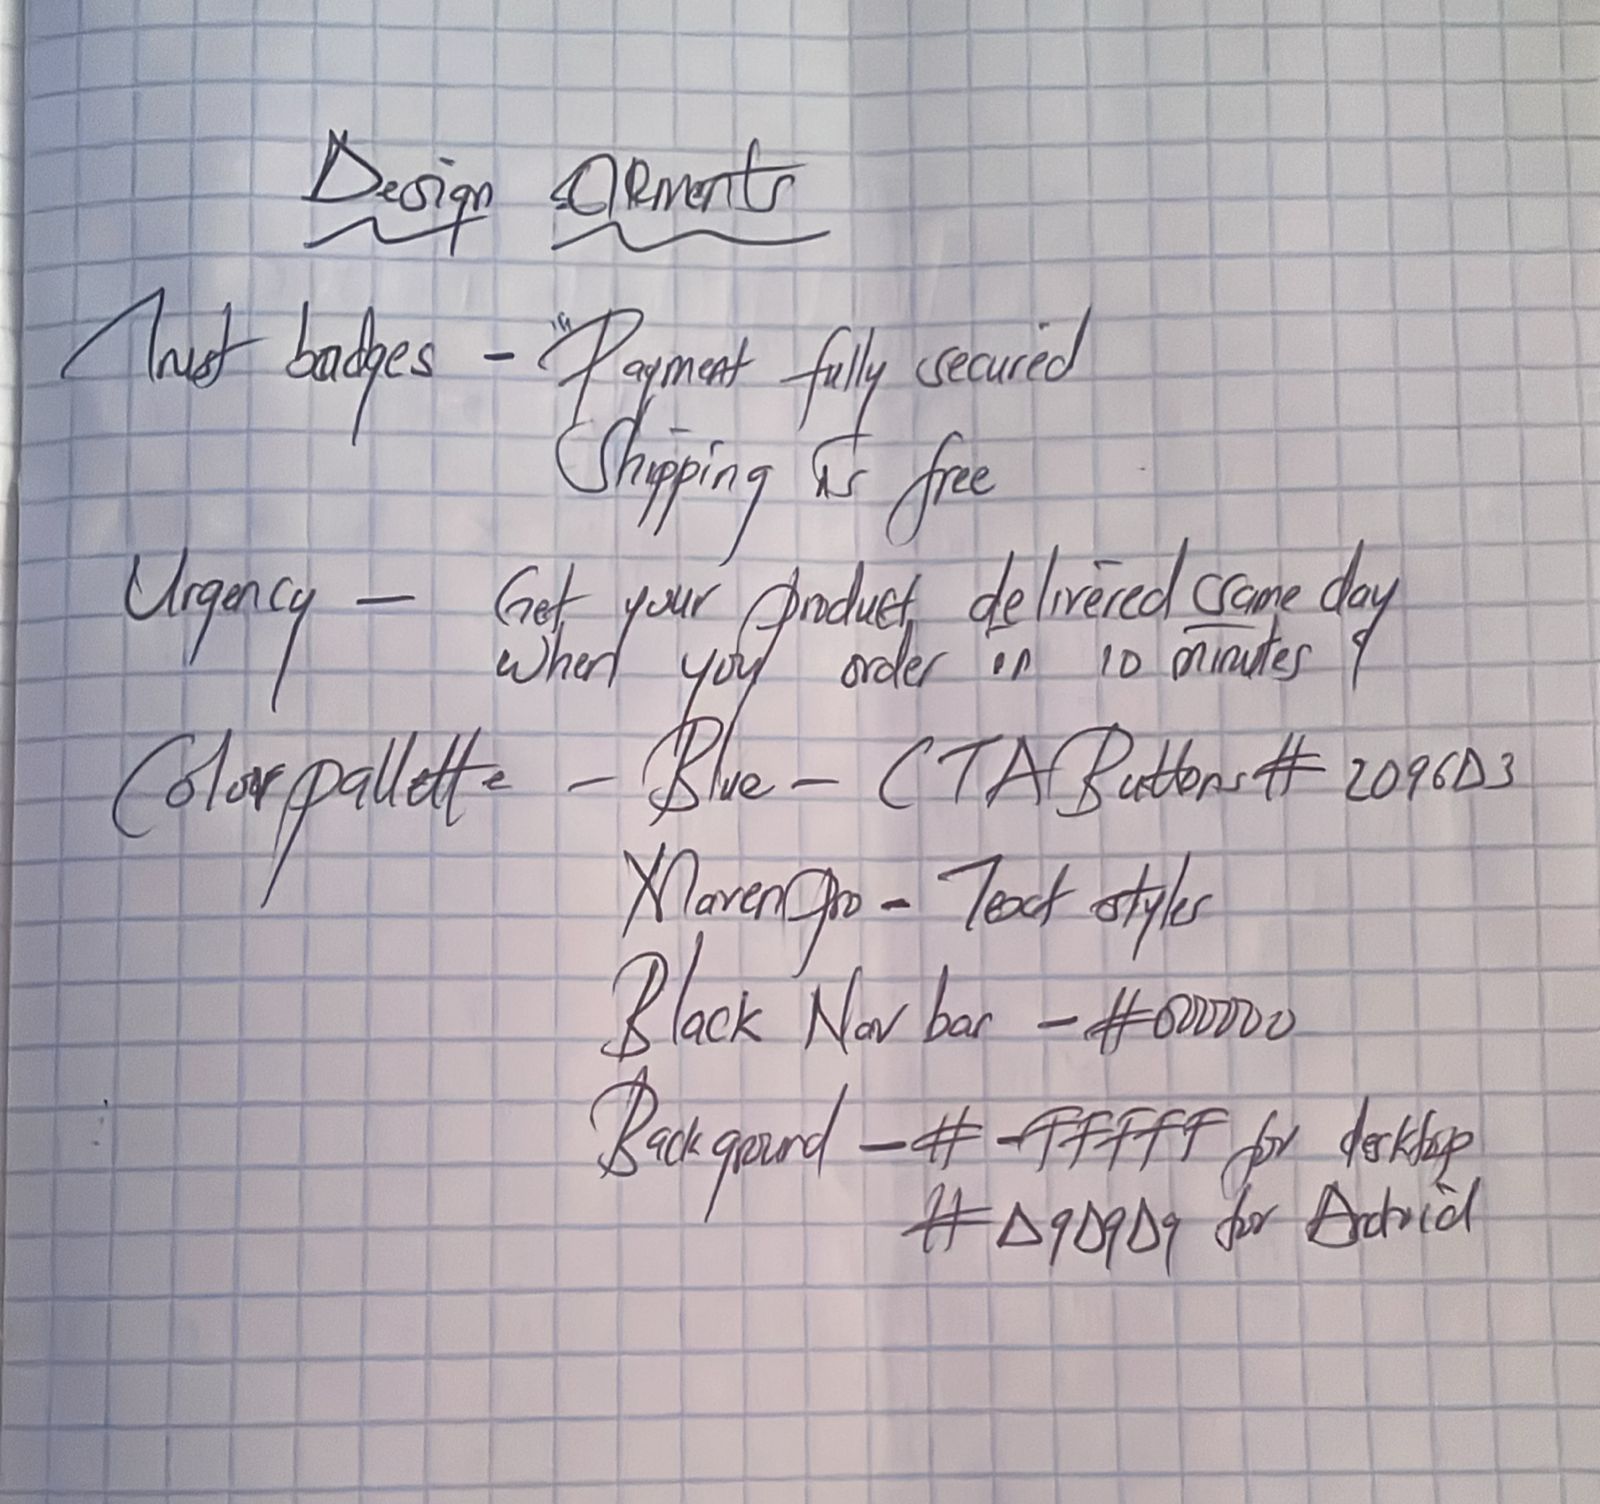 Design Elements
Trust badges - "Payment fully secured
Shipping is free
Urgency - Get your product delivered same day
when you order in 10 minutes
Colour pallette - Blue - CTA Buttons # 2096D3
Maven Pro - Text styles
Black Nav bar - #000000
Background - # FFFFFF for desktop
# D9D9D9 for Android